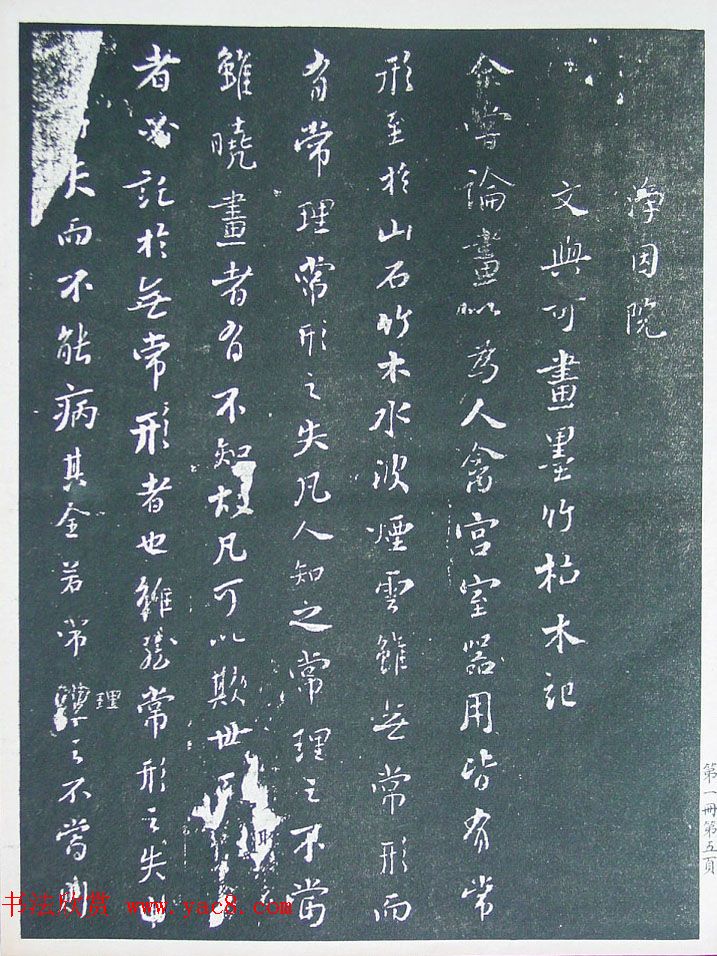 淨因院
文與可畫墨竹枯木記
余嘗論畫以為人禽宮室器用皆有常
形至於山石竹木水波煙雲雖無常形而
有常理常形之失凡人知之常理之不當
雖曉畫者有不知故凡可以欺世取
者必託於無常形者也雖然常形之失止
失而不能病其全若常理之不當則
第一冊第五頁
书法欣赏 www.yac8.com